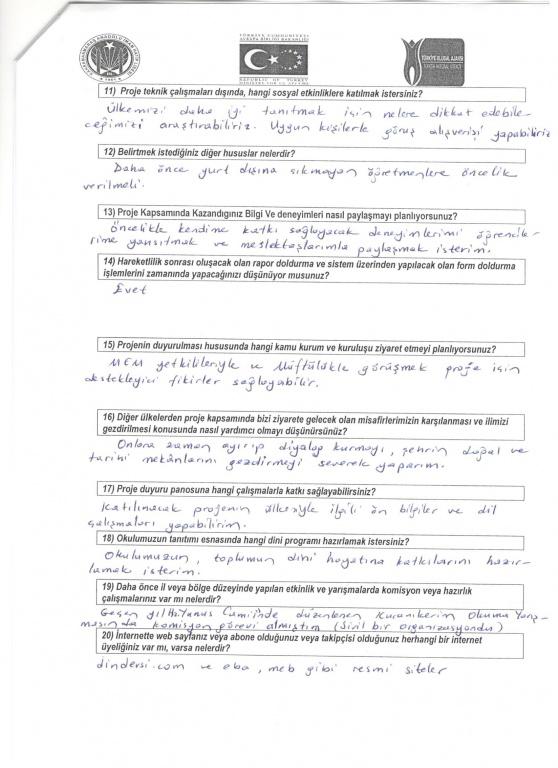 TÜRKİYE CUMHURİYETİ
AVRUPA BİRLİĞİ BAKANLIĞI
REPUBLIC OF TURKEY
MINISTRY FOR EU AFFAIRS
TÜRKİYE ULUSAL AJANSI
11) Proje teknik çalışmaları dışında, hangi sosyal etkinliklere katılmak istersiniz?
Ülkemizi daha iyi tanıtmak için nelere dikkat edebile-
ceğimizi araştırabiliriz. Uygun kişilerle görüş alışverişi yapabiliriz
12) Belirtmek istediğiniz diğer hususlar nelerdir?
Daha önce yurt dışına çıkmayan öğretmenlere öncelik
verilmeli.
13) Proje Kapsamında Kazandığınız Bilgi Ve deneyimleri nasıl paylaşmayı planlıyorsunuz?
Öncelikle kendime katkı sağlayacak deneyimlerimi öğrencile-
rime yansıtmak ve meslektaşlarımla paylaşmak isterim.
14) Hareketlilik sonrası oluşacak olan rapor doldurma ve sistem üzerinden yapılacak olan form doldurma
işlemlerini zamanında yapacağınızı düşünüyor musunuz?
Evet
15) Projenin duyurulması hususunda hangi kamu kurum ve kuruluşu ziyaret etmeyi planlıyorsunuz?
MEM yetkilileriyle ve Müftülükle görüşmek proje için
destekleyici fikirler sağlayabilir.
16) Diğer ülkelerden proje kapsamında bizi ziyarete gelecek olan misafirlerimizin karşılanması ve ilimizi
gezdirilmesi konusunda nasıl yardımcı olmayı düşünürsünüz?
Onlara zaman ayırıp diyalog kurmayı, şehrin doğal ve
tarihi mekânlarını gezdirmeyi severek yaparım.
17) Proje duyuru panosuna hangi çalışmalarla katkı sağlayabilirsiniz?
Katılınacak projenin ülkesiyle ilgili ön bilgiler ve dil
çalışmaları yapabilirim.
18) Okulumuzun tanıtımı esnasında hangi dini programı hazırlamak istersiniz?
Okulumuzun, toplumun dini hayatına katkılarını hazır-
lamak isterim.
19) Daha önce il veya bölge düzeyinde yapılan etkinlik ve yarışmalarda komisyon veya hazırlık
çalışmalarınız var mı nelerdir?
Geçen yıl Camiinde düzenlenen Kuranıkerim Okuma Yarış-
masında komisyon görevi almıştım (Sivil bir organizasyondu)
20) İnternette web sayfanız veya abone olduğunuz veya takipçisi olduğunuz herhangi bir internet
üyeliğiniz var mı, varsa nelerdir?
dindersi.com ve eba, meb gibi resmi siteler